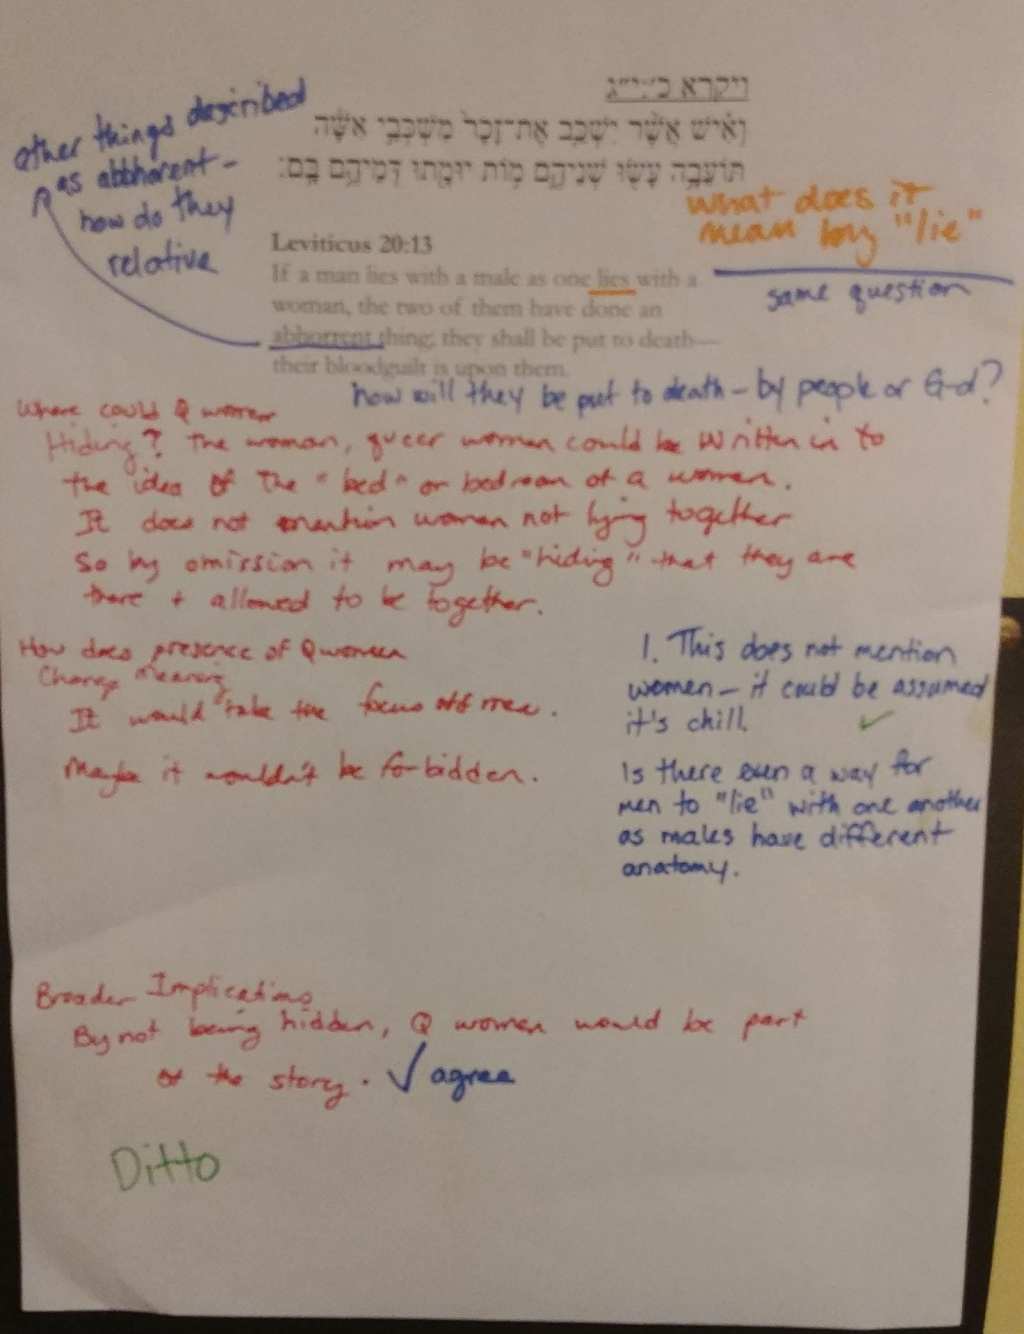 ויקרא כ׃י״ג
וְאִ֗ישׁ אֲשֶׁ֨ר יִשְׁכַּ֤ב אֶת־זָכָר֙ מִשְׁכְּבֵ֣י אִשָּׁ֔ה
תּוֹעֵבָ֥ה עָשׂ֖וּ שְׁנֵיהֶ֑ם מ֥וֹת יוּמָ֖תוּ דְּמֵיהֶ֥ם בָּֽם׃
other things described
as abbhorent -
how do they
relative
what does it
mean by "lie"
same question
Leviticus 20:13
If a man lies with a male as one lies with a
woman, the two of them have done an
abhorrent thing; they shall be put to death—
their bloodguilt is upon them.
how will they be put to death - by people or G-d?
Where could Q women
Hiding? The woman, queer women could be written in to
the idea of the "bed" or bedroom of a women.
It does not mention women not lying together
So by omission it may be "hiding" that they are
there + allowed to be together.
How does presence of Q women
Change meaning
It would take the focus off men.
Maybe it wouldn't be forbidden.
1. This does not mention
women - it could be assumed
it's chill. ✓
Is there even a way for
men to "lie" with one another
as males have different
anatomy.
Broader Implications
By not being hidden, Q women would be part
of the story. ✓ agree
Ditto